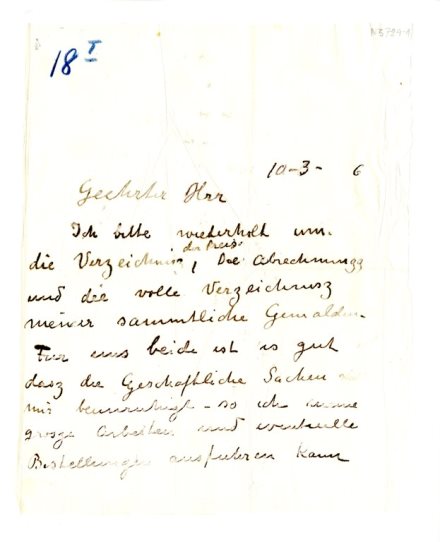 18 I
N 3724-1
10-3- 6
Geehrter Herr
Ich bitte wiederholt um
der Preise
die Verzeichnisz, die Abrechnungg
und die volle Verzeichnusz
meiner sammtliche Gemalden.
Fur uns beide ist es gut
dasz die Geschaftliche Sachen
mis beunruhigt - so ich meine
grosze Arbeiten und eventuelle
Bestellungen ausfuhren kann